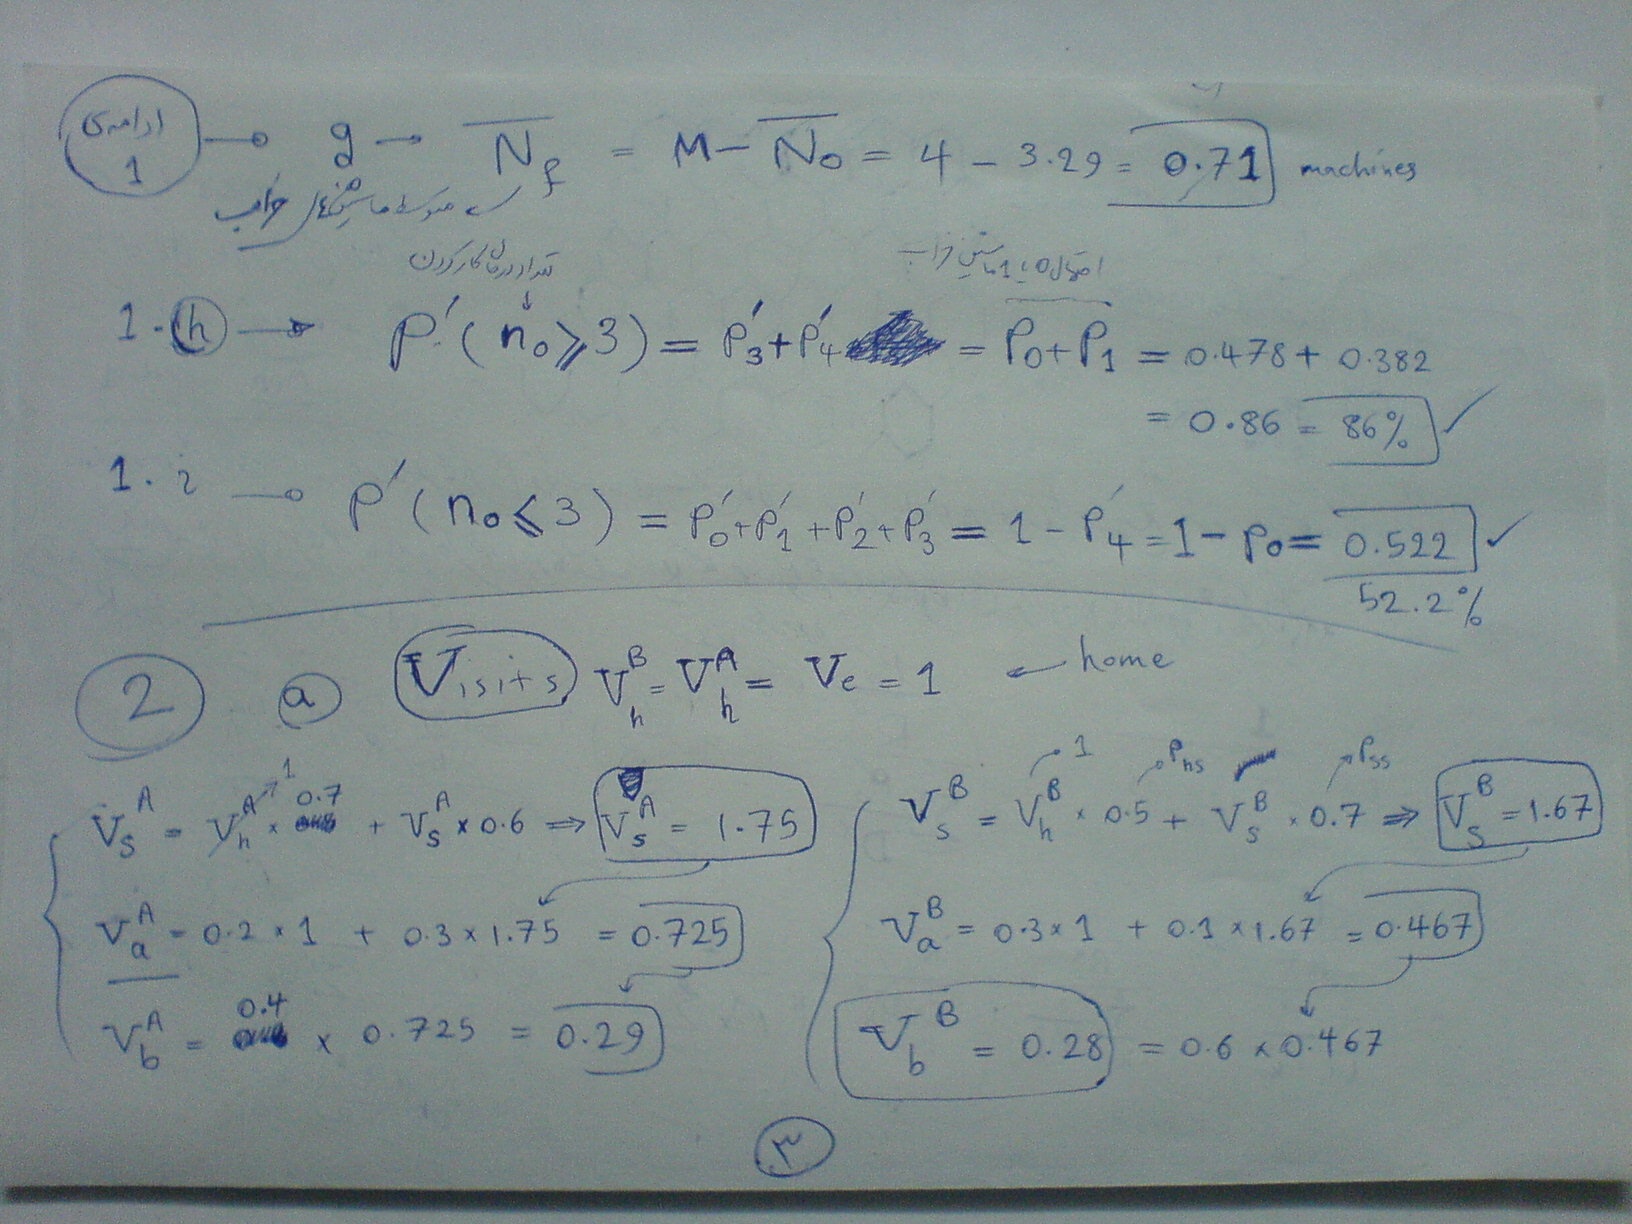 ادامه‌ی 1 → g → N̅f = M − N̅o = 4 − 3.29 = 0.71 machines
متوسط ماشینهای خراب
تعداد درحال کار کردن
احتمال 0 یا 1 ماشین خراب
1.h → P′(no ⩾ 3) = P′3 + P′4 = P0 + P1 = 0.478 + 0.382
= 0.86 = 86% ✓
1.i → P′(no ⩽ 3) = P′0 + P′1 + P′2 + P′3 = 1 − P′4 = 1 − P0 = 0.522 ✓
52.2%
2 a Visits V_h^B = V_h^A = Ve = 1 ← home
V_s^A = V_h^A × 0.7 + V_s^A × 0.6 ⇒ V_s^A = 1.75
1
V_a^A = 0.2 × 1 + 0.3 × 1.75 = 0.725
V_b^A = 0.4 × 0.725 = 0.29
1 Phs Pss
V_s^B = V_h^B × 0.5 + V_s^B × 0.7 ⇒ V_s^B = 1.67
V_a^B = 0.3 × 1 + 0.1 × 1.67 = 0.467
V_b^B = 0.28 = 0.6 × 0.467
۳